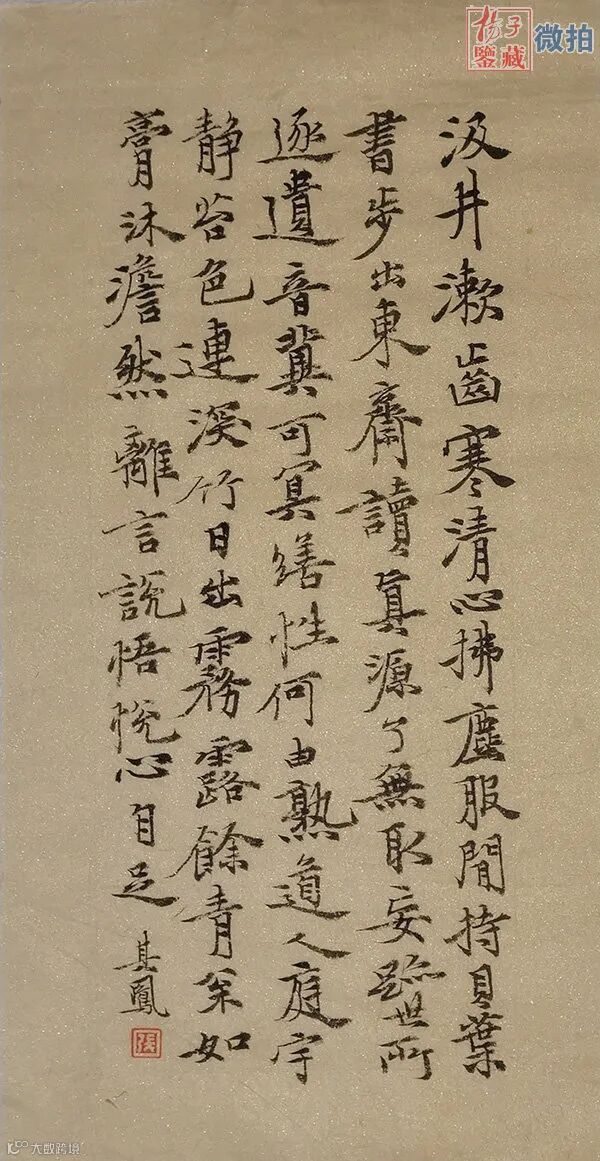 杨子
鑒藏 微拍
汲井漱齒寒清心拂塵服閒持貝葉
書步出東齋讀真源了無取妄跡世所
逐遺音冀可冥繕性何由熟道人庭宇
靜苔色連深竹日出霧露餘青枀如
膏沐澹然離言說悟悅心自足 其鳳
張
大数跨境